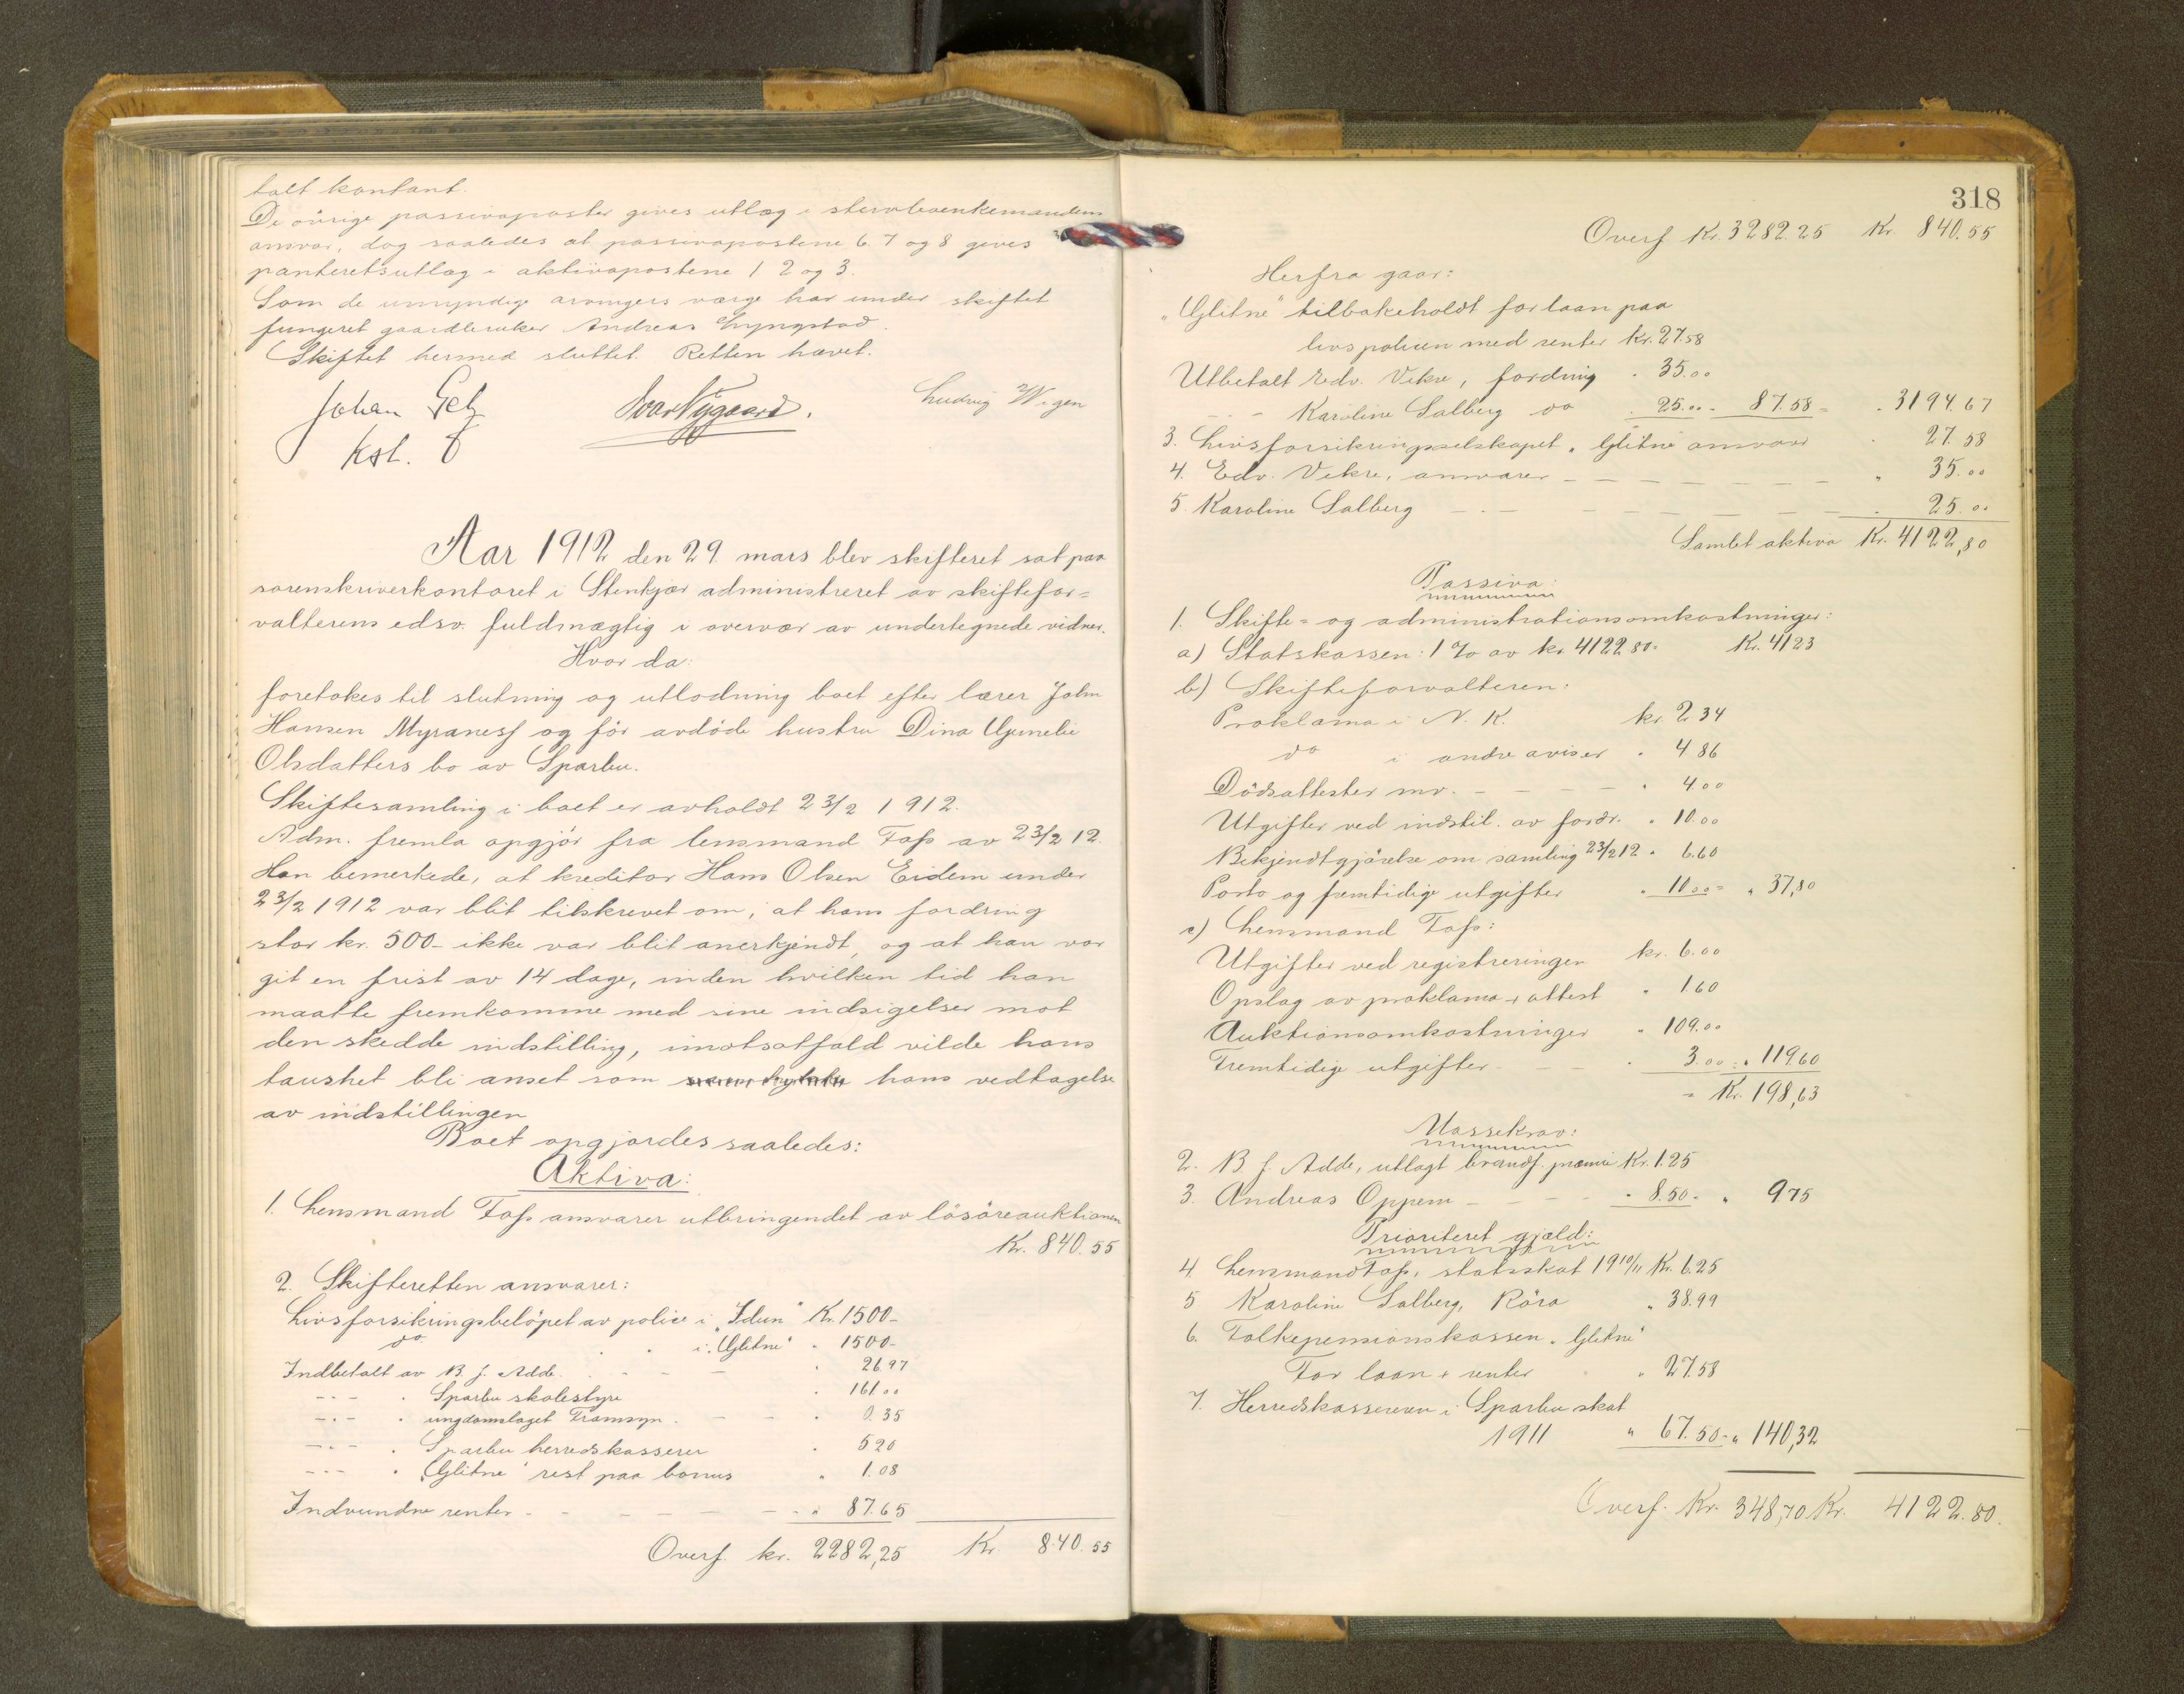 talt kontant.
De øvrige passivaposter gives utlæg i stervboenkemandens
ansvar, dog saaledes at passivapostene 6. 7 og 8 gives
panteretsutlæg i aktivapostene 1 2 og 3.
Som de umyndige arvingers værge har under skiftet
fungeret gaardbruker Andreas Lyngstad.
Skiftet hermed sluttet. Retten hævet.
Johan Getz Ivar Nygaard. Ludvig Wigen
kst.
Aar 1912 den 29. mars blev skifteret sat paa
sorenskriverkontoret i Stenkjær administreret av skiftefor=
valterens edsv. fuldmægtig i overvær av undertegnede vidner.
Hvor da:
foretokes til slutning og utlodning boet efter lærer John
Hansen Myranesf og før avdøde hustru Dina
Olsdatters bo av Sparbu.
Skiftesamling i boet er avholdt 23/2 1912.
Adm. fremla opgjør fra lensmand Foss av 23/2 12.
Han bemerkede, at kreditor Hans Olsen Eidem under
23/2 1912 var blit tilskrevet om, at hans fordring
stor kr. 500- ikke var blit anerkjendt, og at han var
git en frist av 14 dage, inden hvilken tid han
maatte fremkomme med sine indsigelser mot
den skedde indstilling, imotsatfald vilde hans
taushet bli anset som hans vedtagelse
av indstillingen
Boet opgjordes saaledes:
Aktiva:
1. Lensmand Foss ansvarer utbringendet av løsøreauktionen
Kr. 840.55
2. Skifteretten ansvarer:
Livsforsikringsbeløpet av police i "Idun" Kr. 1500-
do. i "Glitne" " 1500-
Indbetalt av B. J. Adde. - - - " 26 97
-"- " Sparbu skolestyre " 161 00
-"- " ungdomslaget Framsyn. - - " 0.35
-"- " Sparbu herredskasserer " 5 20
-"- " "Glitne" rest paa bonus " 1.08
Indvundne renter - - - - - " 87.65
Overf. kr. 2282,25 Kr. 840.55
318
Overf Kr. 3282.25 Kr. 840.55
Herfra gaar:
"Glitne" tilbakeholdt for laan paa
livspolicen med renter Kr. 27.58
Utbetalt Edv. Vekre, fordring " 35.00
-"- Karoline Salberg do " 25.00 - 87.58 = " 3194.67
3. Livsforsikringsselskapet "Glitne" ansvarer " 27.58
4. Edv. Vekre, ansvarer - - - - - - " 35.00
5. Karoline Salberg -"- - - - - - " 25.00
Samlet aktiva Kr. 4122,80
Passiva:
1. Skifte= og administrationsomkostninger:
a) Statskassen: 1 % av kr. 4122.80= Kr. 41 23
b) Skifteforvalteren:
Proklama i N. K. kr. 2 34
do i andre aviser " 4 86
Dødsattester mv. - - - - " 4 00
Utgifter ved indstil. av fordr. " 10.00
Bekjendtgjørelse om samling 23/2 12 " 6.60
Porto og fremtidige utgifter " 10 00 = " 37,80
c) Lensmand Foss:
Utgifter ved registreringen kr. 6.00
Opslag av proklama + attest " 1 60
Auktionsomkostninger " 109.00
Fremtidige utgifter - - - " 3.00 = " 119 60
= Kr. 198,63
Massekrav:
2. B. J. Adde, utlagt brandf. præmie Kr. 1.25
3. Andreas Oppem - - - - " 8.50 = " 9 75
Prioriteret gjæld:
4. Lensmand Foss, statsskat 1910/11 Kr. 6.25
5 Karoline Salberg, Røra " 38.99
6. Folkepensionskassen "Glitne"
For laan + renter " 27.58
7. Herredskassereren i Sparbu skat
1911 " 67.50 = " 140,32
Overf. Kr. 348,70 Kr. 4122.80.